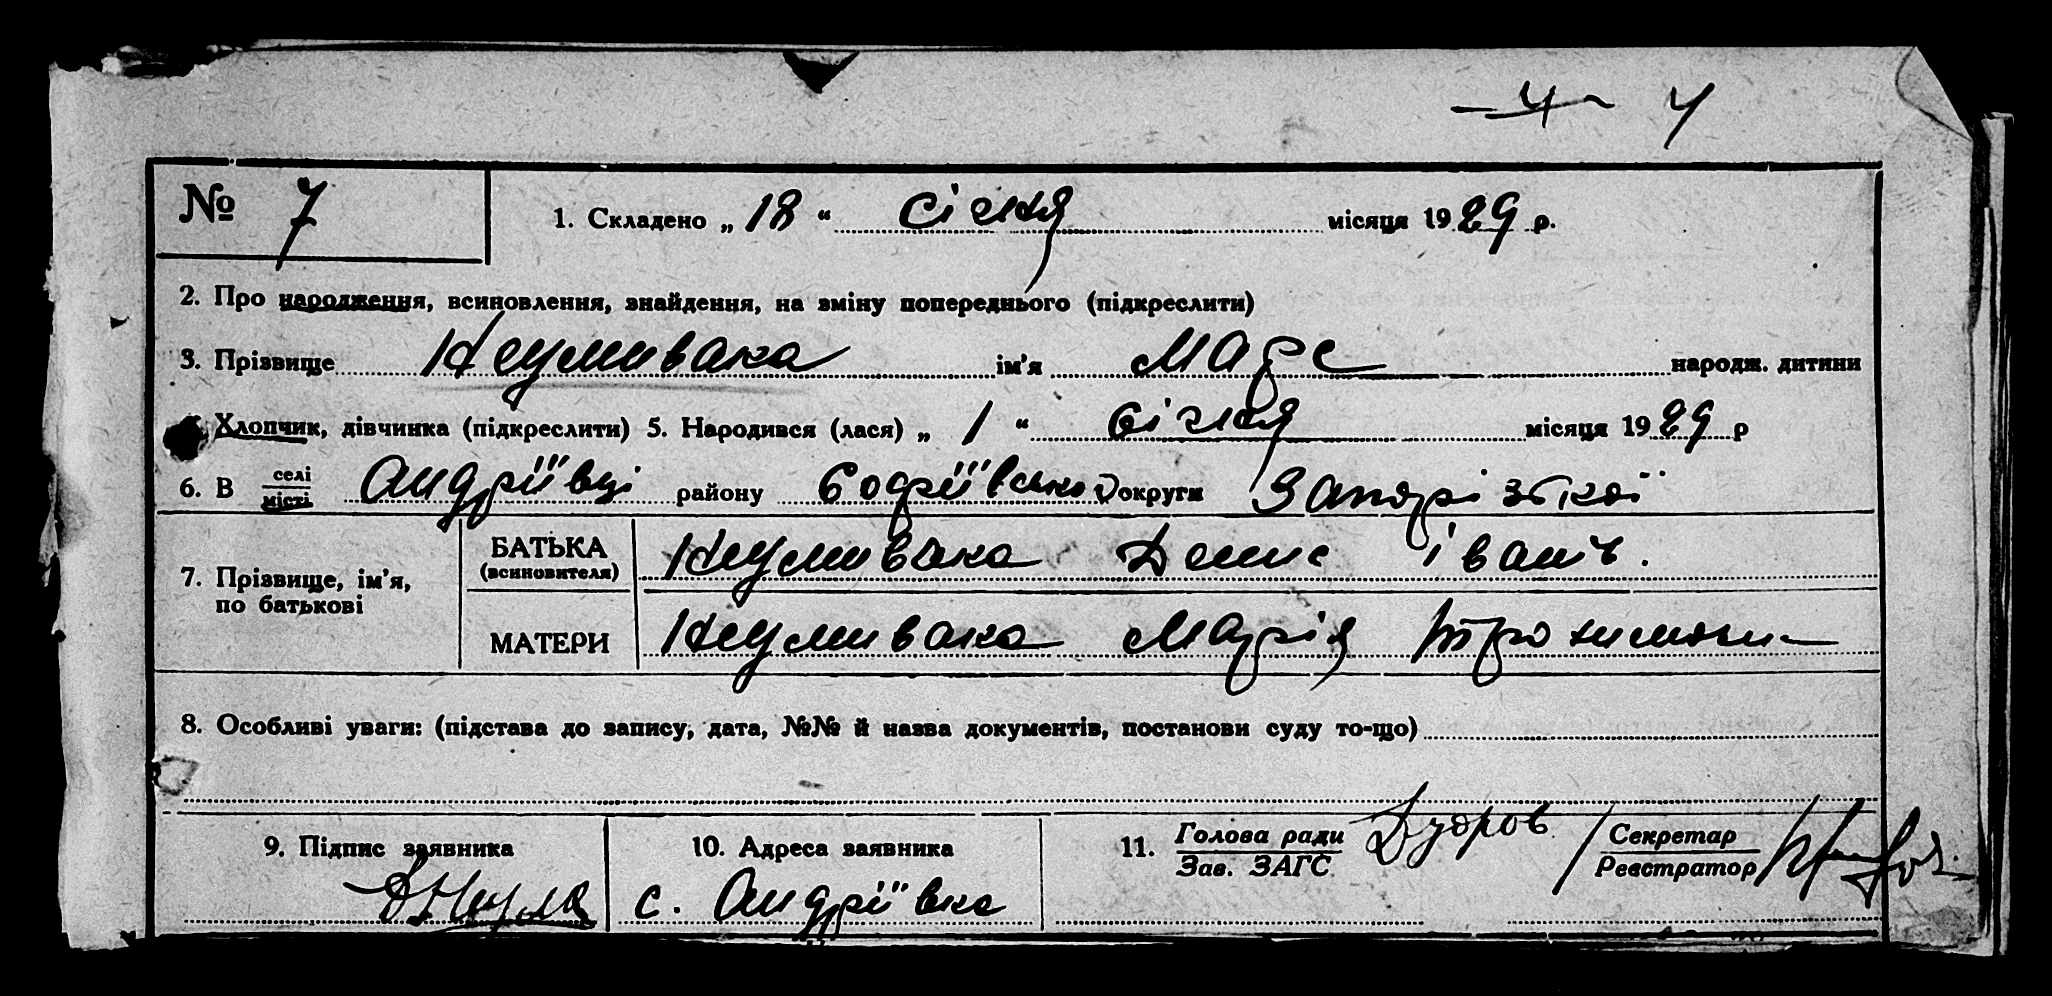 4 4
№ 7
1. Складено „ 18 “ січня місяця 1929 р.
2. Про народження, всиновлення, знайдення, на зміну попереднього (підкреслити)
3. Прізвище Неумивака ім'я Марс народж. дитини
Хлопчик, дівчинка (підкреслити) 5. Народився (лася) „ 1 “ січня місяця 1929 р
6. В селі місті Андріївці району округи Запорізької
7. Прізвище, ім'я, по батькові
БАТЬКА (всиновителя) Неумивака Денис Іванч.
МАТЕРИ Неумивака Марія
8. Особливі уваги: (підстава до запису, дата, №№ й назва документів, постанови суду то-що)
9. Підпис заявника
10. Адреса заявника
с. Андріївка
11. Голова ради Зав. ЗАГС
Секретар Реєстратор